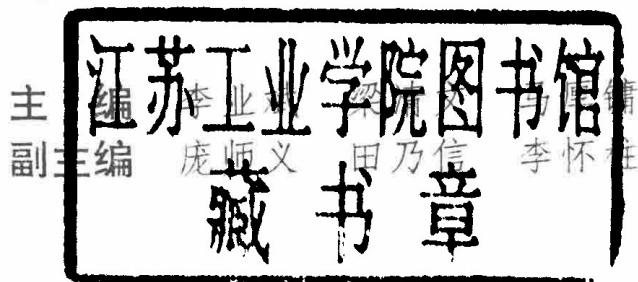 江苏工业学院图书馆
藏书章
主编 李业
副主编 庞师义 田乃信 李怀